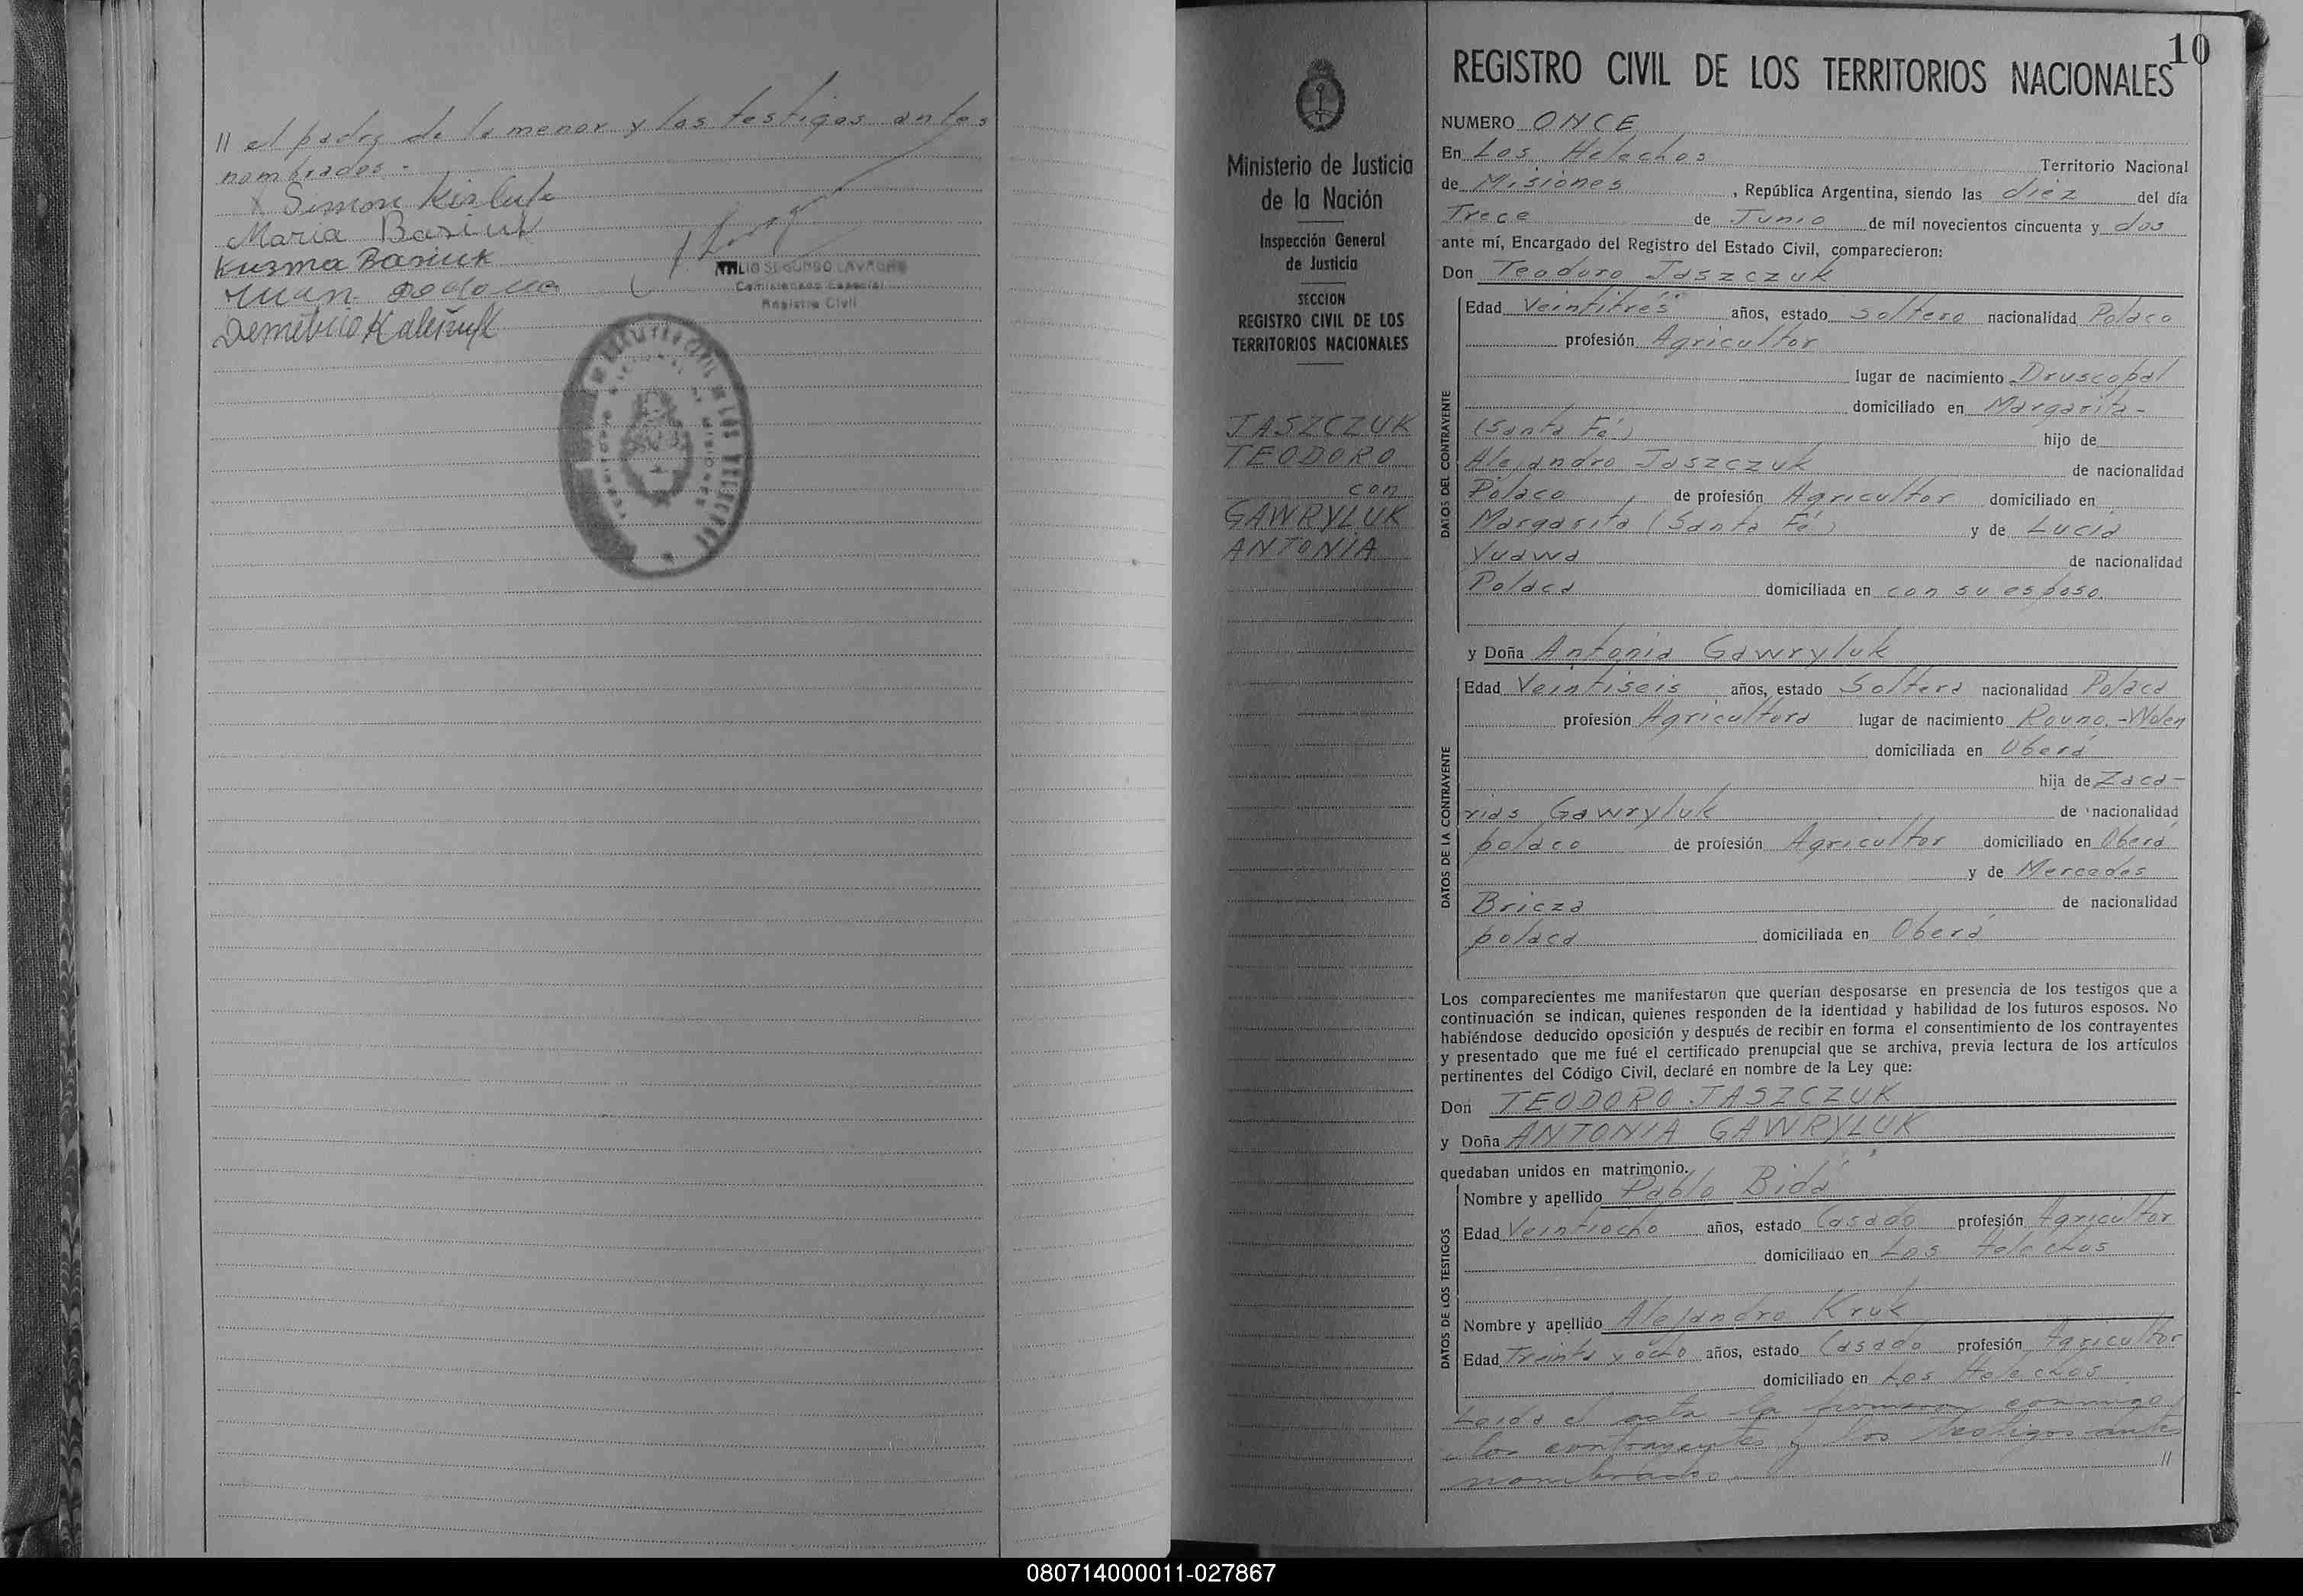 // el padre de la menor y los testigos antes
nombrados.-
X Simon
Maria Basiuk
Kusma Basiuk
Juan
Demetrio
ATILIO SEGUNDO LAVAGNO
Comisionado Especial
Registro Civil
10
Ministerio de Justicia
de la Nación
Inspección General
de Justicia
SECCION
REGISTRO CIVIL DE LOS
TERRITORIOS NACIONALES
JASZCZUK
TEODORO
con
GAWRYLUK
ANTONIA
REGISTRO CIVIL DE LOS TERRITORIOS NACIONALES
NUMERO ONCE
En Los Helechos Territorio Nacional
de Misiones, República Argentina, siendo las diez del día
Trece de Junio de mil novecientos cincuenta y dos
ante mí, Encargado del Registro del Estado Civil, comparecieron:
Don Teodoro Jaszczuk
DATOS DEL CONTRAYENTE
Edad Veintitrés años, estado soltero nacionalidad Polaco
profesión Agricultor
lugar de nacimiento Druscopol
domiciliado en Margarita-
(Santa Fé) hijo de
Alejandro Jaszczuk de nacionalidad
Polaco de profesión Agricultor domiciliado en
Margarita (Santa Fé) y de Lucia
Yudwa de nacionalidad
Polaca domiciliada en con su esposo.
y Doña Antonia Gawryluk
DATOS DE LA CONTRAYENTE
Edad Veintiseis años, estado Soltera nacionalidad Polaca
profesión Agricultora lugar de nacimiento Rouno.-Wolen
domiciliada en Oberá
hija de Zaca-
rias Gawryluk de nacionalidad
polaco de profesión Agricultor domiciliado en Oberá
y de Mercedes
Bricza de nacionalidad
polaca domiciliada en Oberá
Los comparecientes me manifestaron que querían desposarse en presencia de los testigos que a
continuación se indican, quienes responden de la identidad y habilidad de los futuros esposos. No
habiéndose deducido oposición y después de recibir en forma el consentimiento de los contrayentes
y presentado que me fué el certificado prenupcial que se archiva, previa lectura de los artículos
pertinentes del Código Civil, declaré en nombre de la Ley que:
Don TEODORO JASZCZUK
y Doña ANTONIA GAWRYLUK
quedaban unidos en matrimonio.
DATOS DE LOS TESTIGOS
Nombre y apellido Pablo Bida
Edad Veintiocho años, estado Casado profesión Agricultor
domiciliado en Los Helechos
Nombre y apellido Alejandro Kruk
Edad Treinta y ocho años, estado Casado profesión Agricultor
domiciliado en Los Helechos
Leida el acta la firmaron conmigo
los contrayentes y los testigos antes
nombrados.- //
080714000011-027867